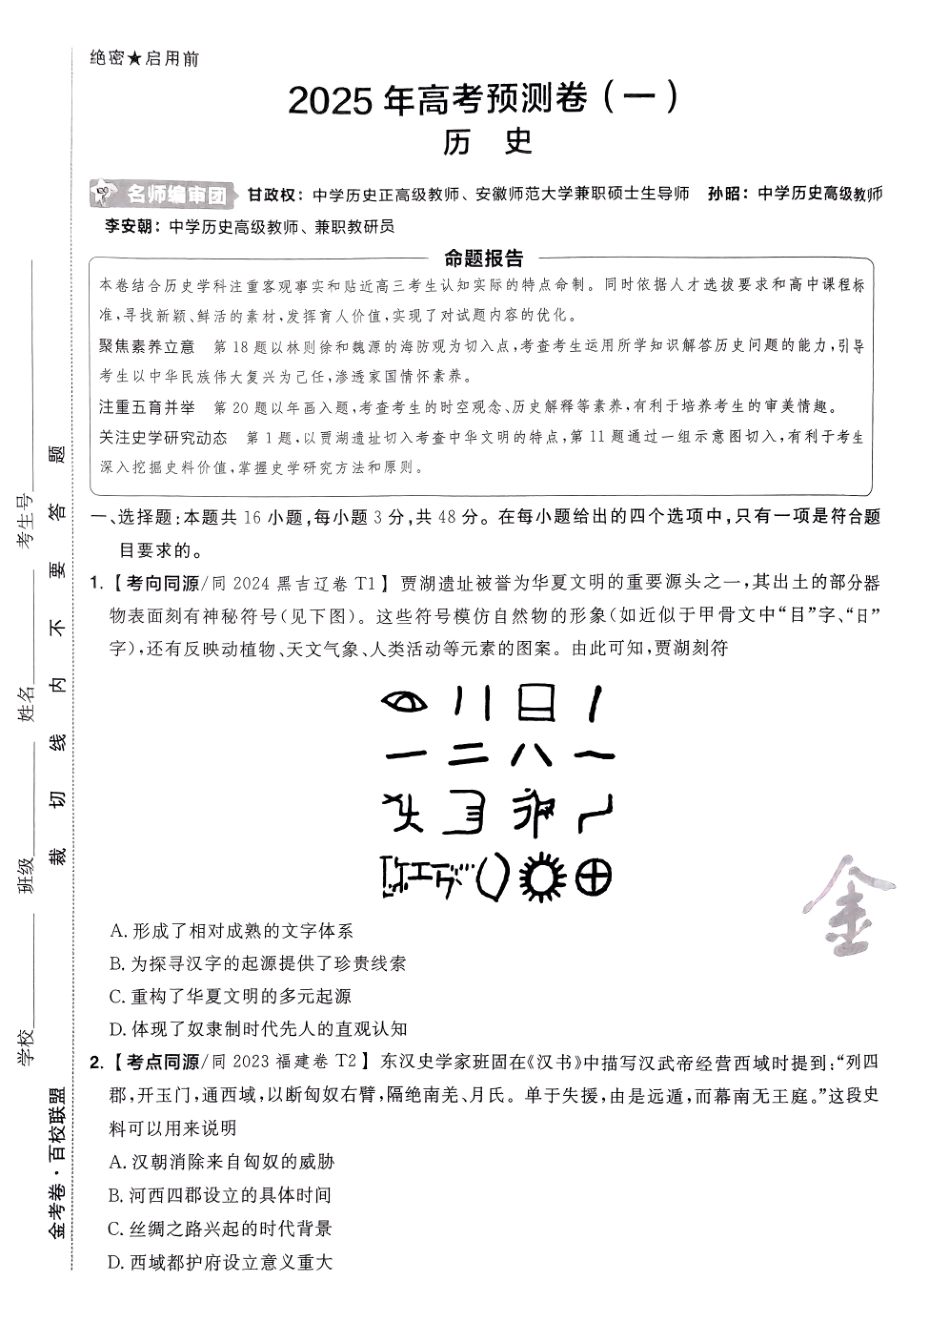 绝密★启用前
2025年高考预测卷(一)
历 史
名师编审团 甘政权:中学历史正高级教师、安徽师范大学兼职硕士生导师 孙昭:中学历史高级教师
李安朝:中学历史高级教师、兼职教研员
命题报告
本卷结合历史学科注重客观事实和贴近高三考生认知实际的特点命制。同时依据人才选拔要求和高中课程标
准,寻找新颖、鲜活的素材,发挥育人价值,实现了对试题内容的优化。
聚焦素养立意 第18题以林则徐和魏源的海防观为切入点,考查考生运用所学知识解答历史问题的能力,引导
考生以中华民族伟大复兴为己任,渗透家国情怀素养。
注重五育并举 第20题以年画入题,考查考生的时空观念、历史解释等素养,有利于培养考生的审美情趣。
关注史学研究动态 第1题,以贾湖遗址切入考查中华文明的特点,第11题通过一组示意图切入,有利于考生
深入挖掘史料价值,掌握史学研究方法和原则。
一、选择题:本题共16小题,每小题3分,共48分。在每小题给出的四个选项中,只有一项是符合题
目要求的。
1.【考向同源/同2024黑吉辽卷T1】贾湖遗址被誉为华夏文明的重要源头之一,其出土的部分器
物表面刻有神秘符号(见下图)。这些符号模仿自然物的形象(如近似于甲骨文中“目”字、“日”
字),还有反映动植物、天文气象、人类活动等元素的图案。由此可知,贾湖刻符
A.形成了相对成熟的文字体系
B.为探寻汉字的起源提供了珍贵线索
C.重构了华夏文明的多元起源
D.体现了奴隶制时代先人的直观认知
2.【考点同源/同2023福建卷T2】东汉史学家班固在《汉书》中描写汉武帝经营西域时提到:“列四
郡,开玉门,通西域,以断匈奴右臂,隔绝南羌、月氏。单于失援,由是远遁,而幕南无王庭。”这段史
料可以用来说明
A.汉朝消除来自匈奴的威胁
B.河西四郡设立的具体时间
C.丝绸之路兴起的时代背景
D.西域都护府设立意义重大
金
学校 班级 姓名 考生号
金考卷·百校联盟 裁 切 线 内 不 要 答 题